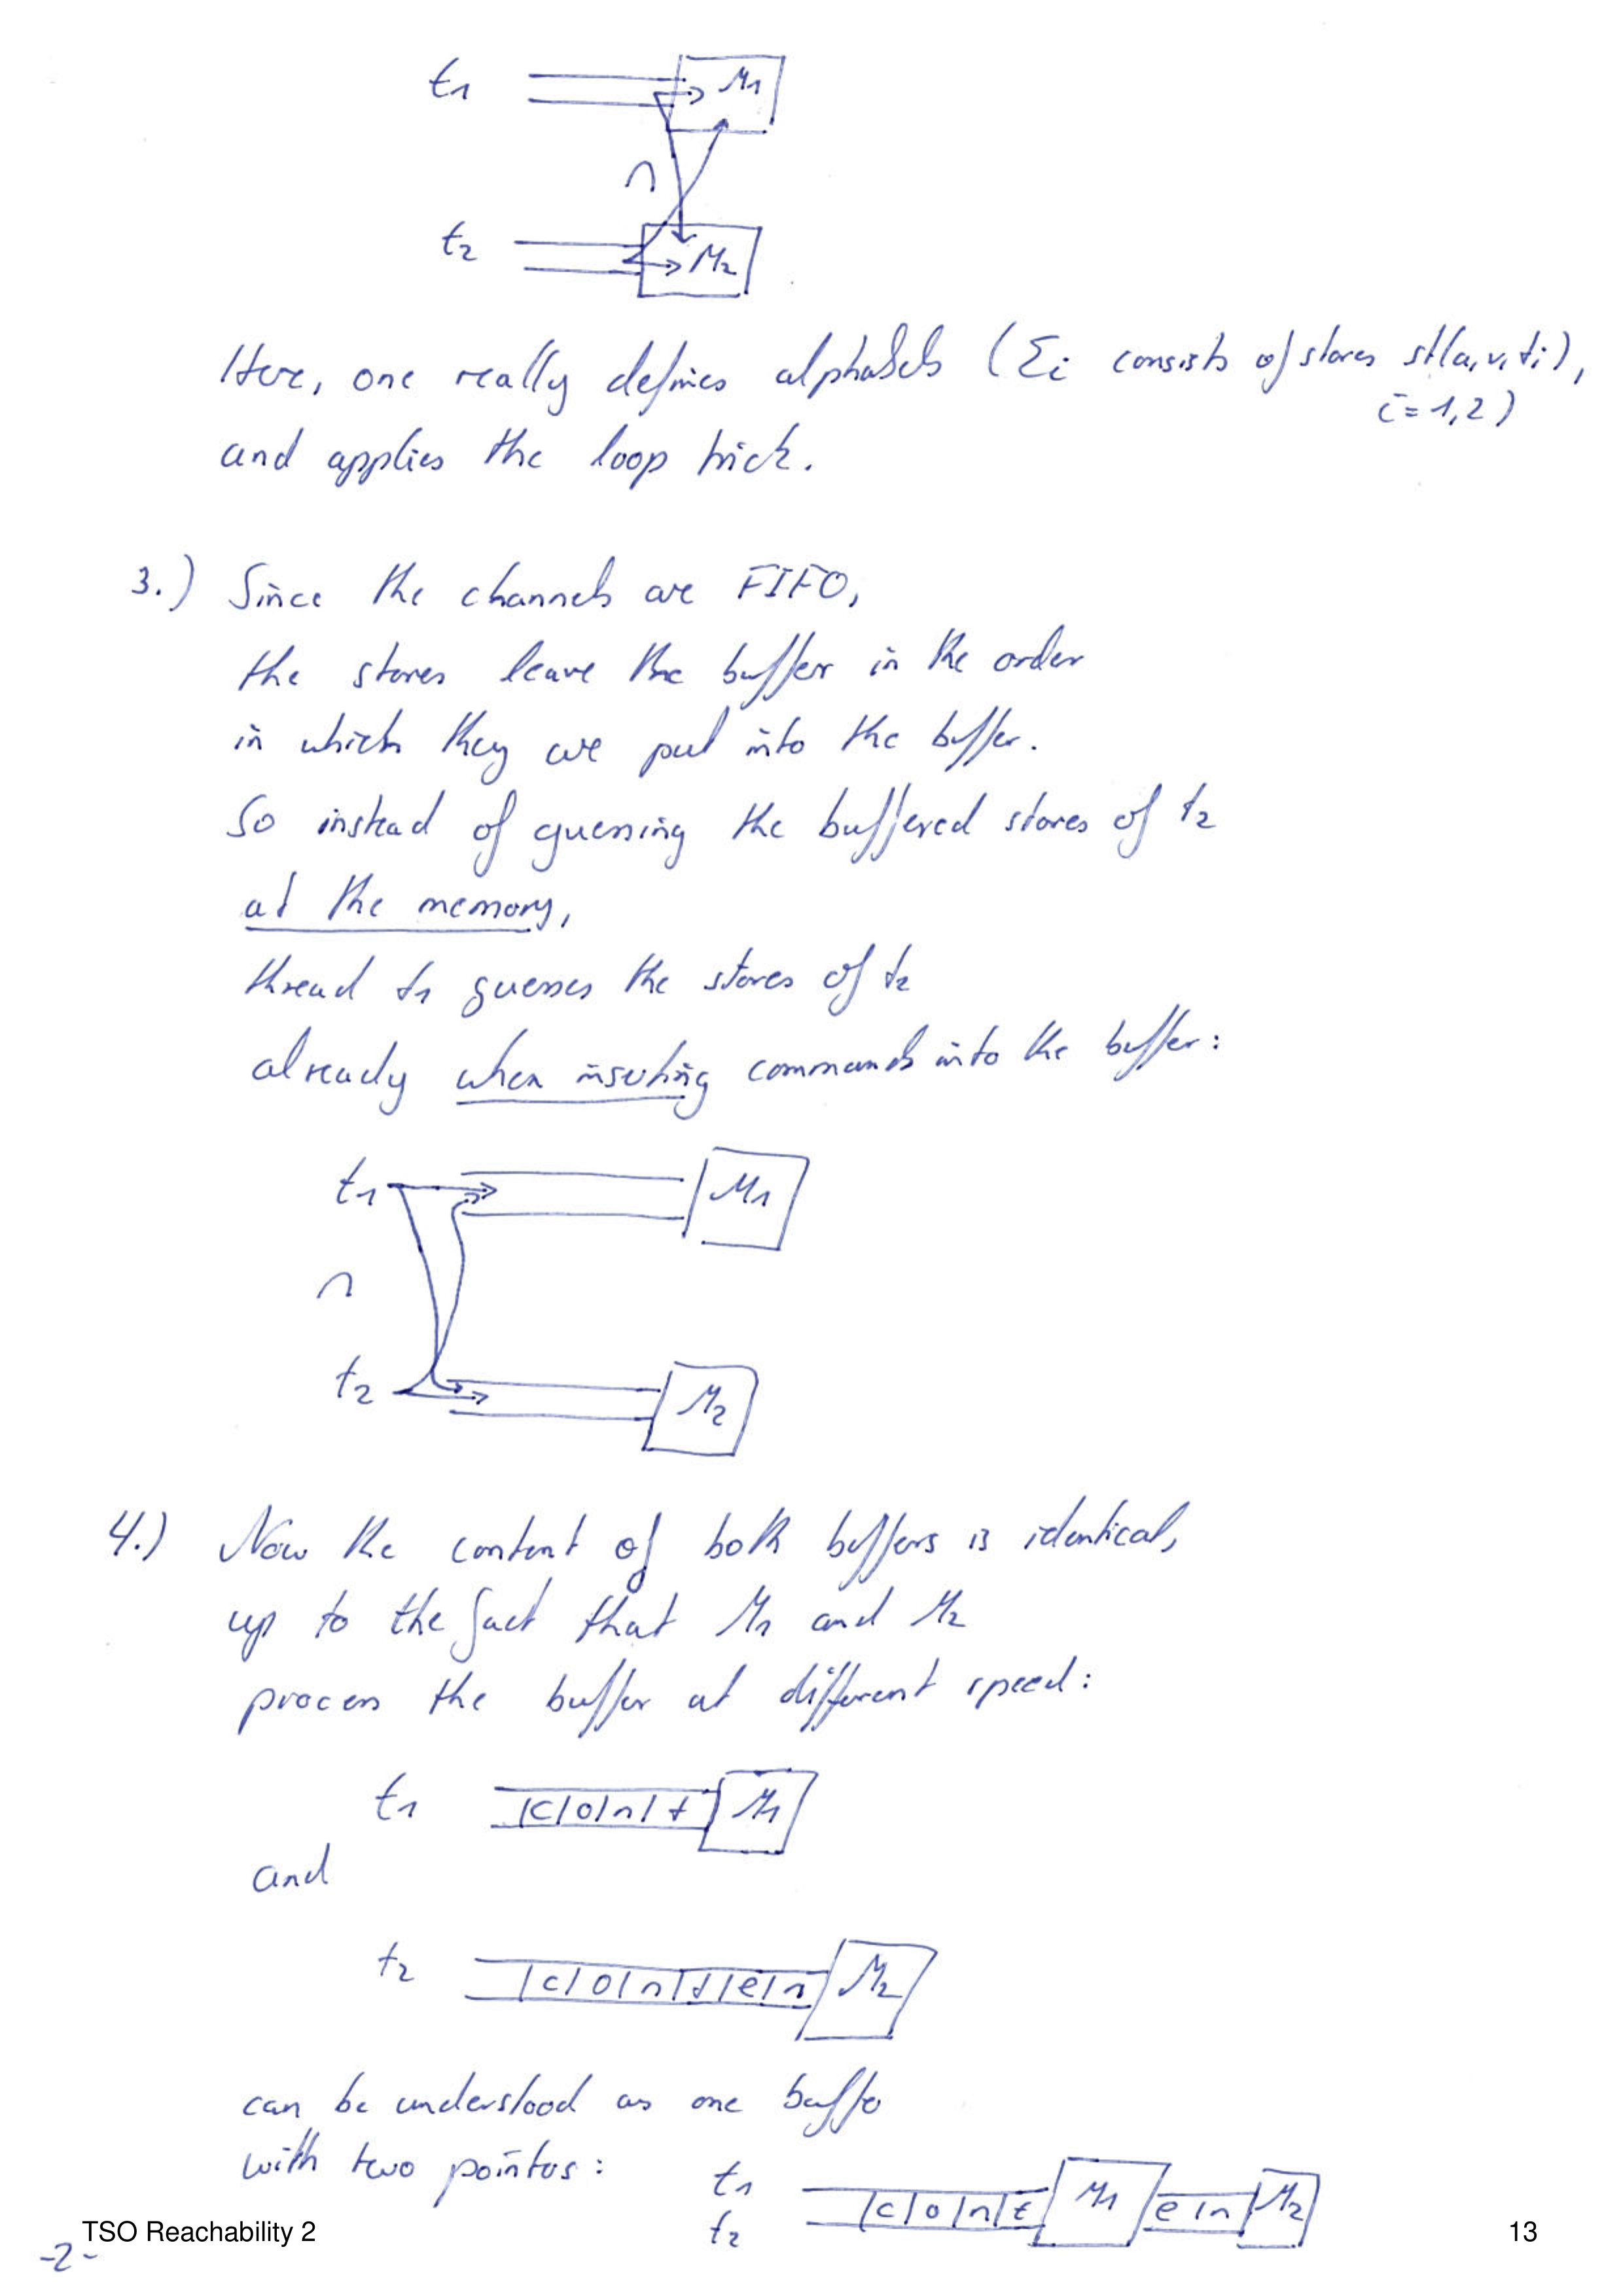 t₁ M₁
∩
t₂ M₂
Here, one really defines alphabets (Σi consists of stores st(a,v,ti),
i=1,2)
and applies the loop trick.
3.) Since the channels are FIFO,
the stores leave the buffer in the order
in which they are put into the buffer.
So instead of guessing the buffered stores of t₂
at the memory,
thread t₁ guesses the stores of t₂
already when inserting commands into the buffer:
t₁ M₁
∩
t₂ M₂
4.) Now the content of both buffers is identical,
up to the fact that M₁ and M₂
process the buffer at different speed:
t₁ |c|o|n|t M₁
and
t₂ |c|o|n|t|e|n M₂
can be understood as one buffer
with two pointers:
t₁ |c|o|n|t M₁ e|n M₂
t₂
TSO Reachability 2 13
-2-